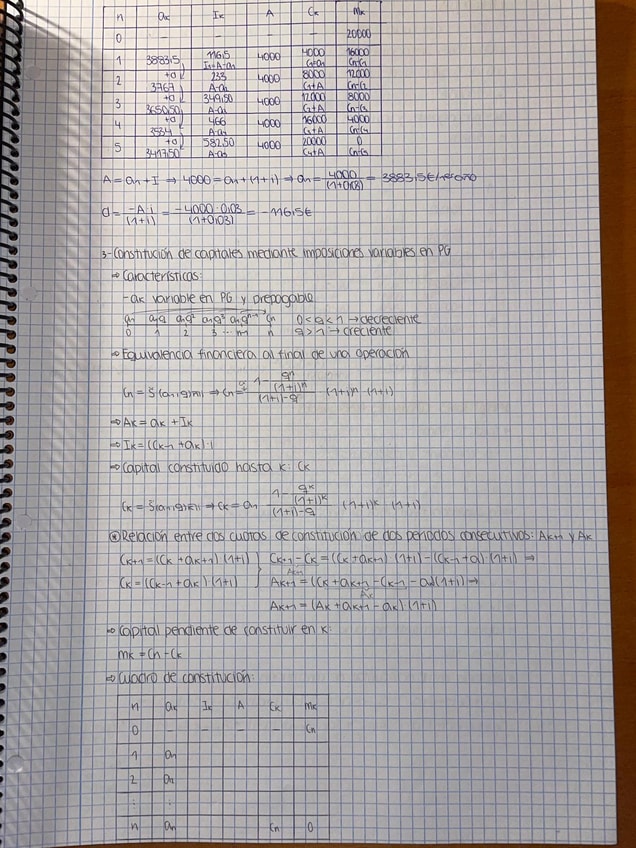 n ak Ik A Ck Mk
0 - - - - 20000
1 3883,5 116,5 4000 4000 16000
I1=A-a1 C1+a1 Cn-C1
2 +d 233 4000 8000 12000
3767 A-a2 C1+A Cn-C2
3 +d 349,50 4000 12000 8000
3650,50 A-a3 C2+A Cn-C3
4 +d 466 4000 16000 4000
3534 A-a4 C3+A Cn-C4
5 +d 582,50 4000 20000 0
3417,50 A-a5 C4+A Cn-C5
A = a1 + I ⇒ 4000 = a1 + (1+i) ⇒ a1 = 4000/(1+0,03) = 3883,5€/1er año
d = -A·i/(1+i) = -4000·0,03/(1+0,03) = -116,5€
3- Constitución de capitales mediante imposiciones variables en PG
⇒ Características:
- ak variable en PG y prepagable
a1 a1q a1q² a1q³ a1qⁿ⁻¹ Cn 0<q<1 → decreciente
0 1 2 3 ... n-1 n q>1 → creciente
⇒ Equivalencia financiera al final de una operación
Cn = S̈(a1,q)n|i ⇒ Cn = a · (1 - qⁿ/(1+i)ⁿ)/((1+i)-q) · (1+i)ⁿ · (1+i)
⇒ Ak = ak + Ik
⇒ Ik = (Ck-1 + ak)·i
⇒ Capital constituido hasta k: Ck
Ck = S̈(a1,q)k|i ⇒ Ck = a1 · (1 - qᵏ/(1+i)ᵏ)/((1+i)-q) · (1+i)ᵏ · (1+i)
Relación entre dos cuotas de constitución de dos periodos consecutivos: Ak+1 y Ak
Ck+1 = (Ck + ak+1)·(1+i) } Ck+1 - Ck = (Ck + ak+1)·(1+i) - (Ck-1 + a)·(1+i) ⇒
Ak+1
Ck = (Ck-1 + ak)·(1+i) } Ak+1 = (Ck + ak+1 - Ck-1 - ak)(1+i) ⇒
Ak
Ak+1 = (Ak + ak+1 - ak)·(1+i)
⇒ Capital pendiente de constituir en k:
mk = Cn - Ck
⇒ Cuadro de constitución:
n ak Ik A Ck mk
0 - - - - Cn
1 a1
2 a2
⋮ ⋮
n an Cn 0